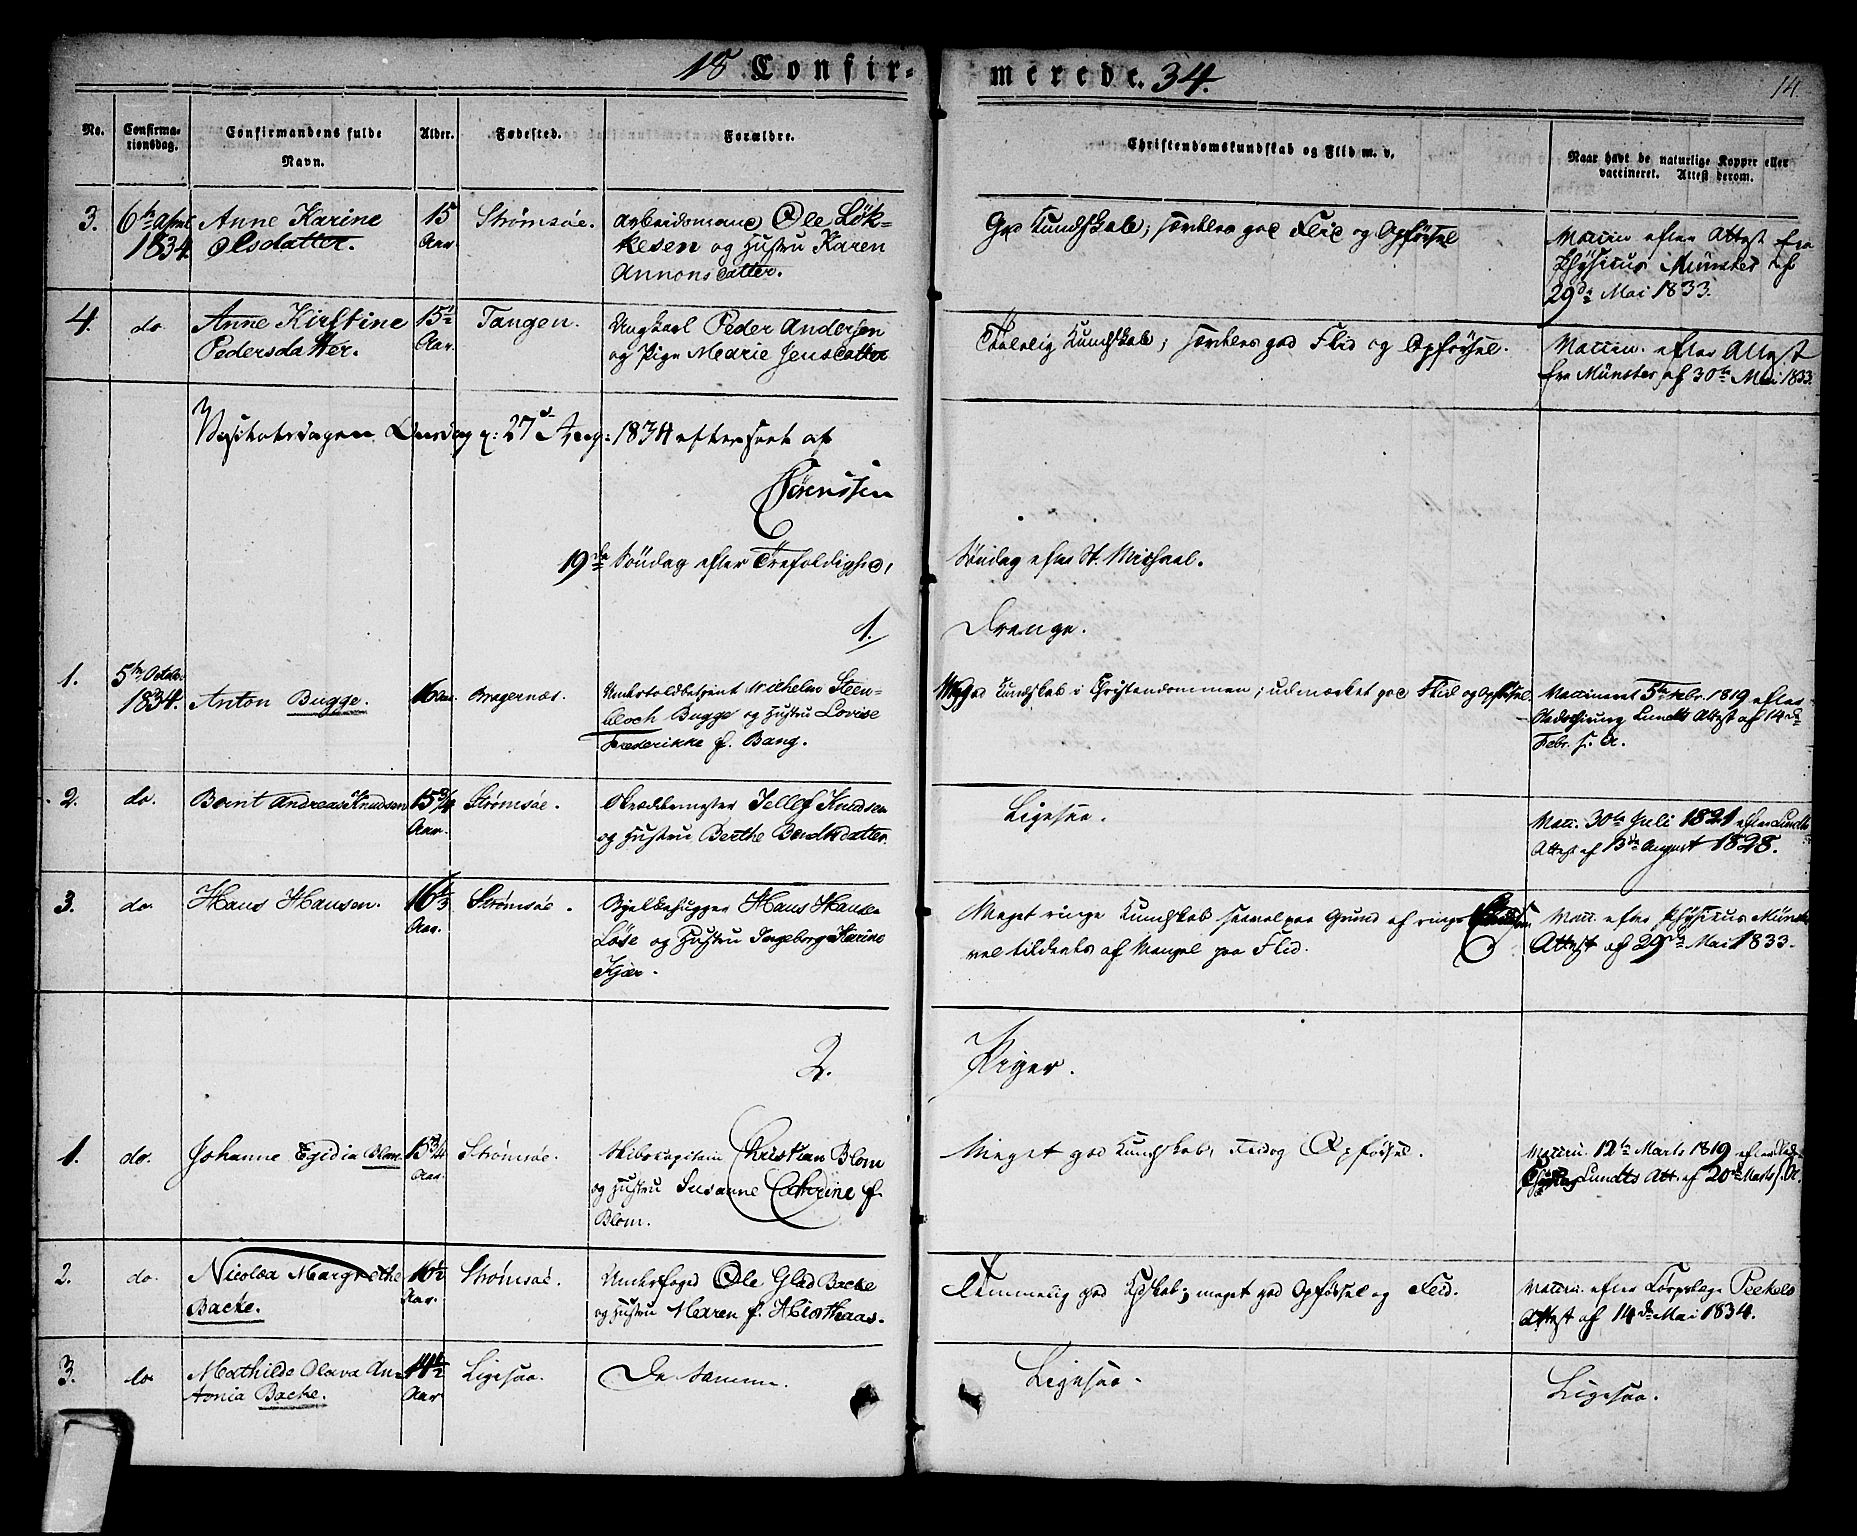 18 Confir-
merede. 34.
14.
No.
Confirma-
tionsdag.
Confirmandens fulde
Navn.
Alder.
Fødested.
Forældre.
Christendomskundskab og Flid m. v.
Naar havt de naturlige Kopper eller
vaccineret. Attest derom.
3. 6te April 1834. Anne Karine
Olsdatter.
15
Aar
Strømsøe.
Arbeidsmand Ole Løk-
kesen og Hustru Karen
Annonsdatter.
God Kundskab; særdeles god Flid og Opførsel
Vaccin. efter Attest fra
Physicus Münster af
29de Mai 1833.
4. do. Anne Kirstine
Pedersdatter.
15½
Aar.
Tangen.
Ungkarl Peder Andersen
og Pige Marie Jensdatter
Taalelig Kundskab; særdeles god Flid og Opførsel.
Vaccin. efter Attest
fra Münster af 30te Mai 1833.
Visitatsdagen Onsdag d: 27de Aug: 1834 efterseet af
Sørenssen
19de Søndag efter Trefoldighed,
Søndag efter St. Michael.
1.
Drenge.
1. 5te Octobr
1834. Anton Bugge. 16 Aar. Bragernæs.
Undertoldbetjent Wilhelm Steen-
bloch Bugge og Hustru Lovise
Frederikke f. Bang.
Mg. god Kundskab i Christendommen; udmærket god Flid og Opførsel.
Vaccineret 5te Febr. 1819 efter
Lundts Attest af 14de
Febr. s. A.
2. do. Bernt Andreas Knudsen 15¾
Aar.
Strømsøe.
Skræddermester Jellef Knudsen
og Hustru Berthe Berntsdatter.
Ligesaa.
Vacc. 30te Juli 1821 efter Lundts
Attest af 13de August 1828.
3. do. Hans Hansen. 16⅓
Aar.
Strømsøe.
Bjelkehugger Hans Hansen
Løse og Hustru Ingeborg Karine
Kjær.
Meget ringe Kundskab saavel paa Grund af ringe
vel tildeels af Mangel paa Flid.
Vacc. efter Physicus Münsters
Attest af 29de Mai 1833.
2.
Piger.
1. do. Johanne Egidia Blom. 15¾
Aar.
Strømsøe.
Skibskapitain Christian Blom
og Hustru Susanne Cathrine f.
Blom.
Meget god Kundskab, Flid og Opførsel.
Vaccin. 12te Marts 1819 efter
Lundts Att. af 20de Marts s. A.
2. do. Nicolæa Margrethe
Backe.
16½
Aar.
Strømsøe.
Underfoged Ole Glad Backe
og Hustru Maren f. Hiorthaas.
Temmelig god Kdskab; meget god Opførsel og Flid.
Vaccin. efter Corpslæge Peckels
Attest af 14de Mai 1834.
3. do Mathilde Olava An-
tonia Backe.
14½
Aar
Ligesaa.
De Samme.
Ligesaa.
Ligesaa.